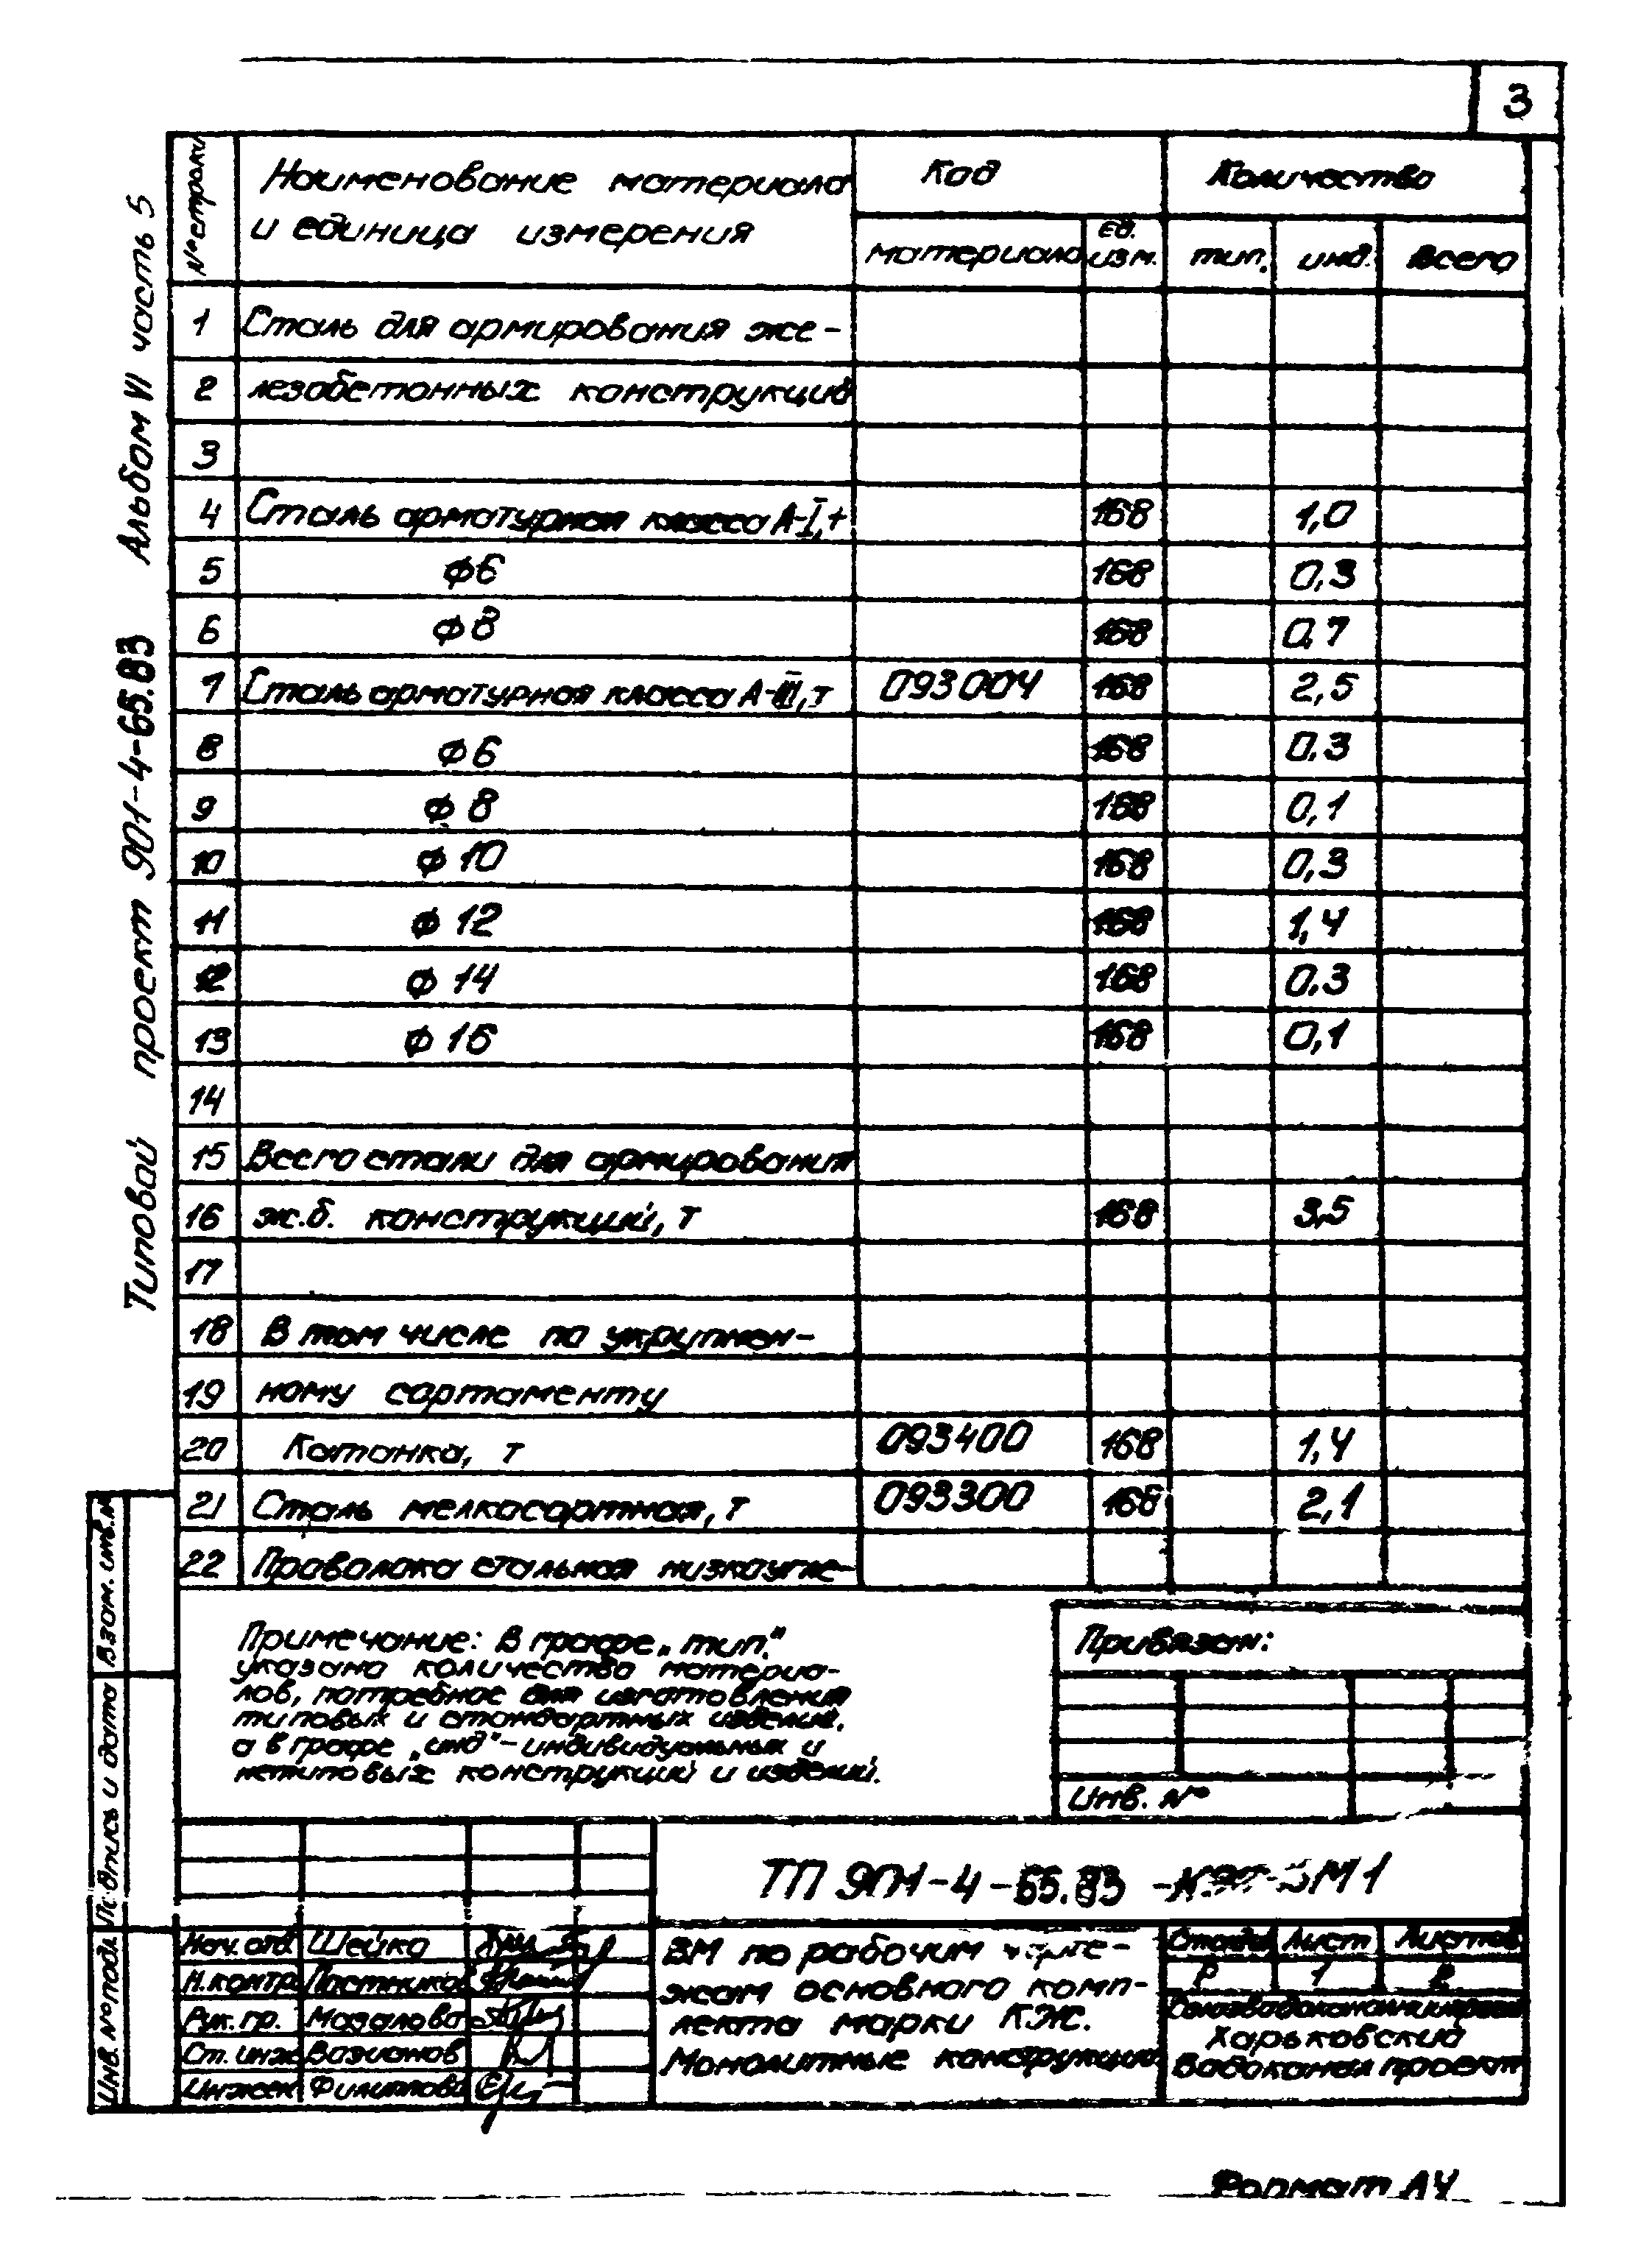 3
Типовой проект 901-4-65.83 Альбом VI часть 5
№ строки
Наименование материала
и единица измерения
Код
Количество
материала
ед.
изм.
тип.
инд.
всего
1 Сталь для армирования же-
2 лезобетонных конструкций
3
4 Сталь арматурная класса А-I, т 168 1,0
5 ф6 168 0,3
6 ф8 168 0,7
7 Сталь арматурная класса А-III, т 093004 168 2,5
8 ф6 168 0,3
9 ф8 168 0,1
10 ф10 168 0,3
11 ф12 168 1,4
12 ф14 168 0,3
13 ф16 168 0,1
14
15 Всего стали для армирования
16 ж.б. конструкций, т 168 3,5
17
18 В том числе по укрупнен-
19 ному сортаменту
20 Катанка, т 093400 168 1,4
21 Сталь мелкосортная, т 093300 168 2,1
22 Проволока стальная низкоугле-
Примечание: В графе „тип."
указано количество материа-
лов, потребное для изготовления
типовых и стандартных изделий,
а в графе „инд"-индивидуальных и
нетиповых конструкций и изделий.
Привязан:
Инв. №
Взам. инв. №
Подпись и дата
Инв. № подл
ТП 901-4-65.83 -КЖ-ВМ1
Нач. отд. Шейко
Н. контр. Постников
Рук. гр.
Ст. инж
Инжен. Филиппова
ВМ по рабочим черте-
жам основного комп-
лекта марки КЖ.
Монолитные конструкции
Стадия Лист Листов
Р 1 2
Союзводоканалпроект
Харьковский
Водоканалпроект
Формат А4